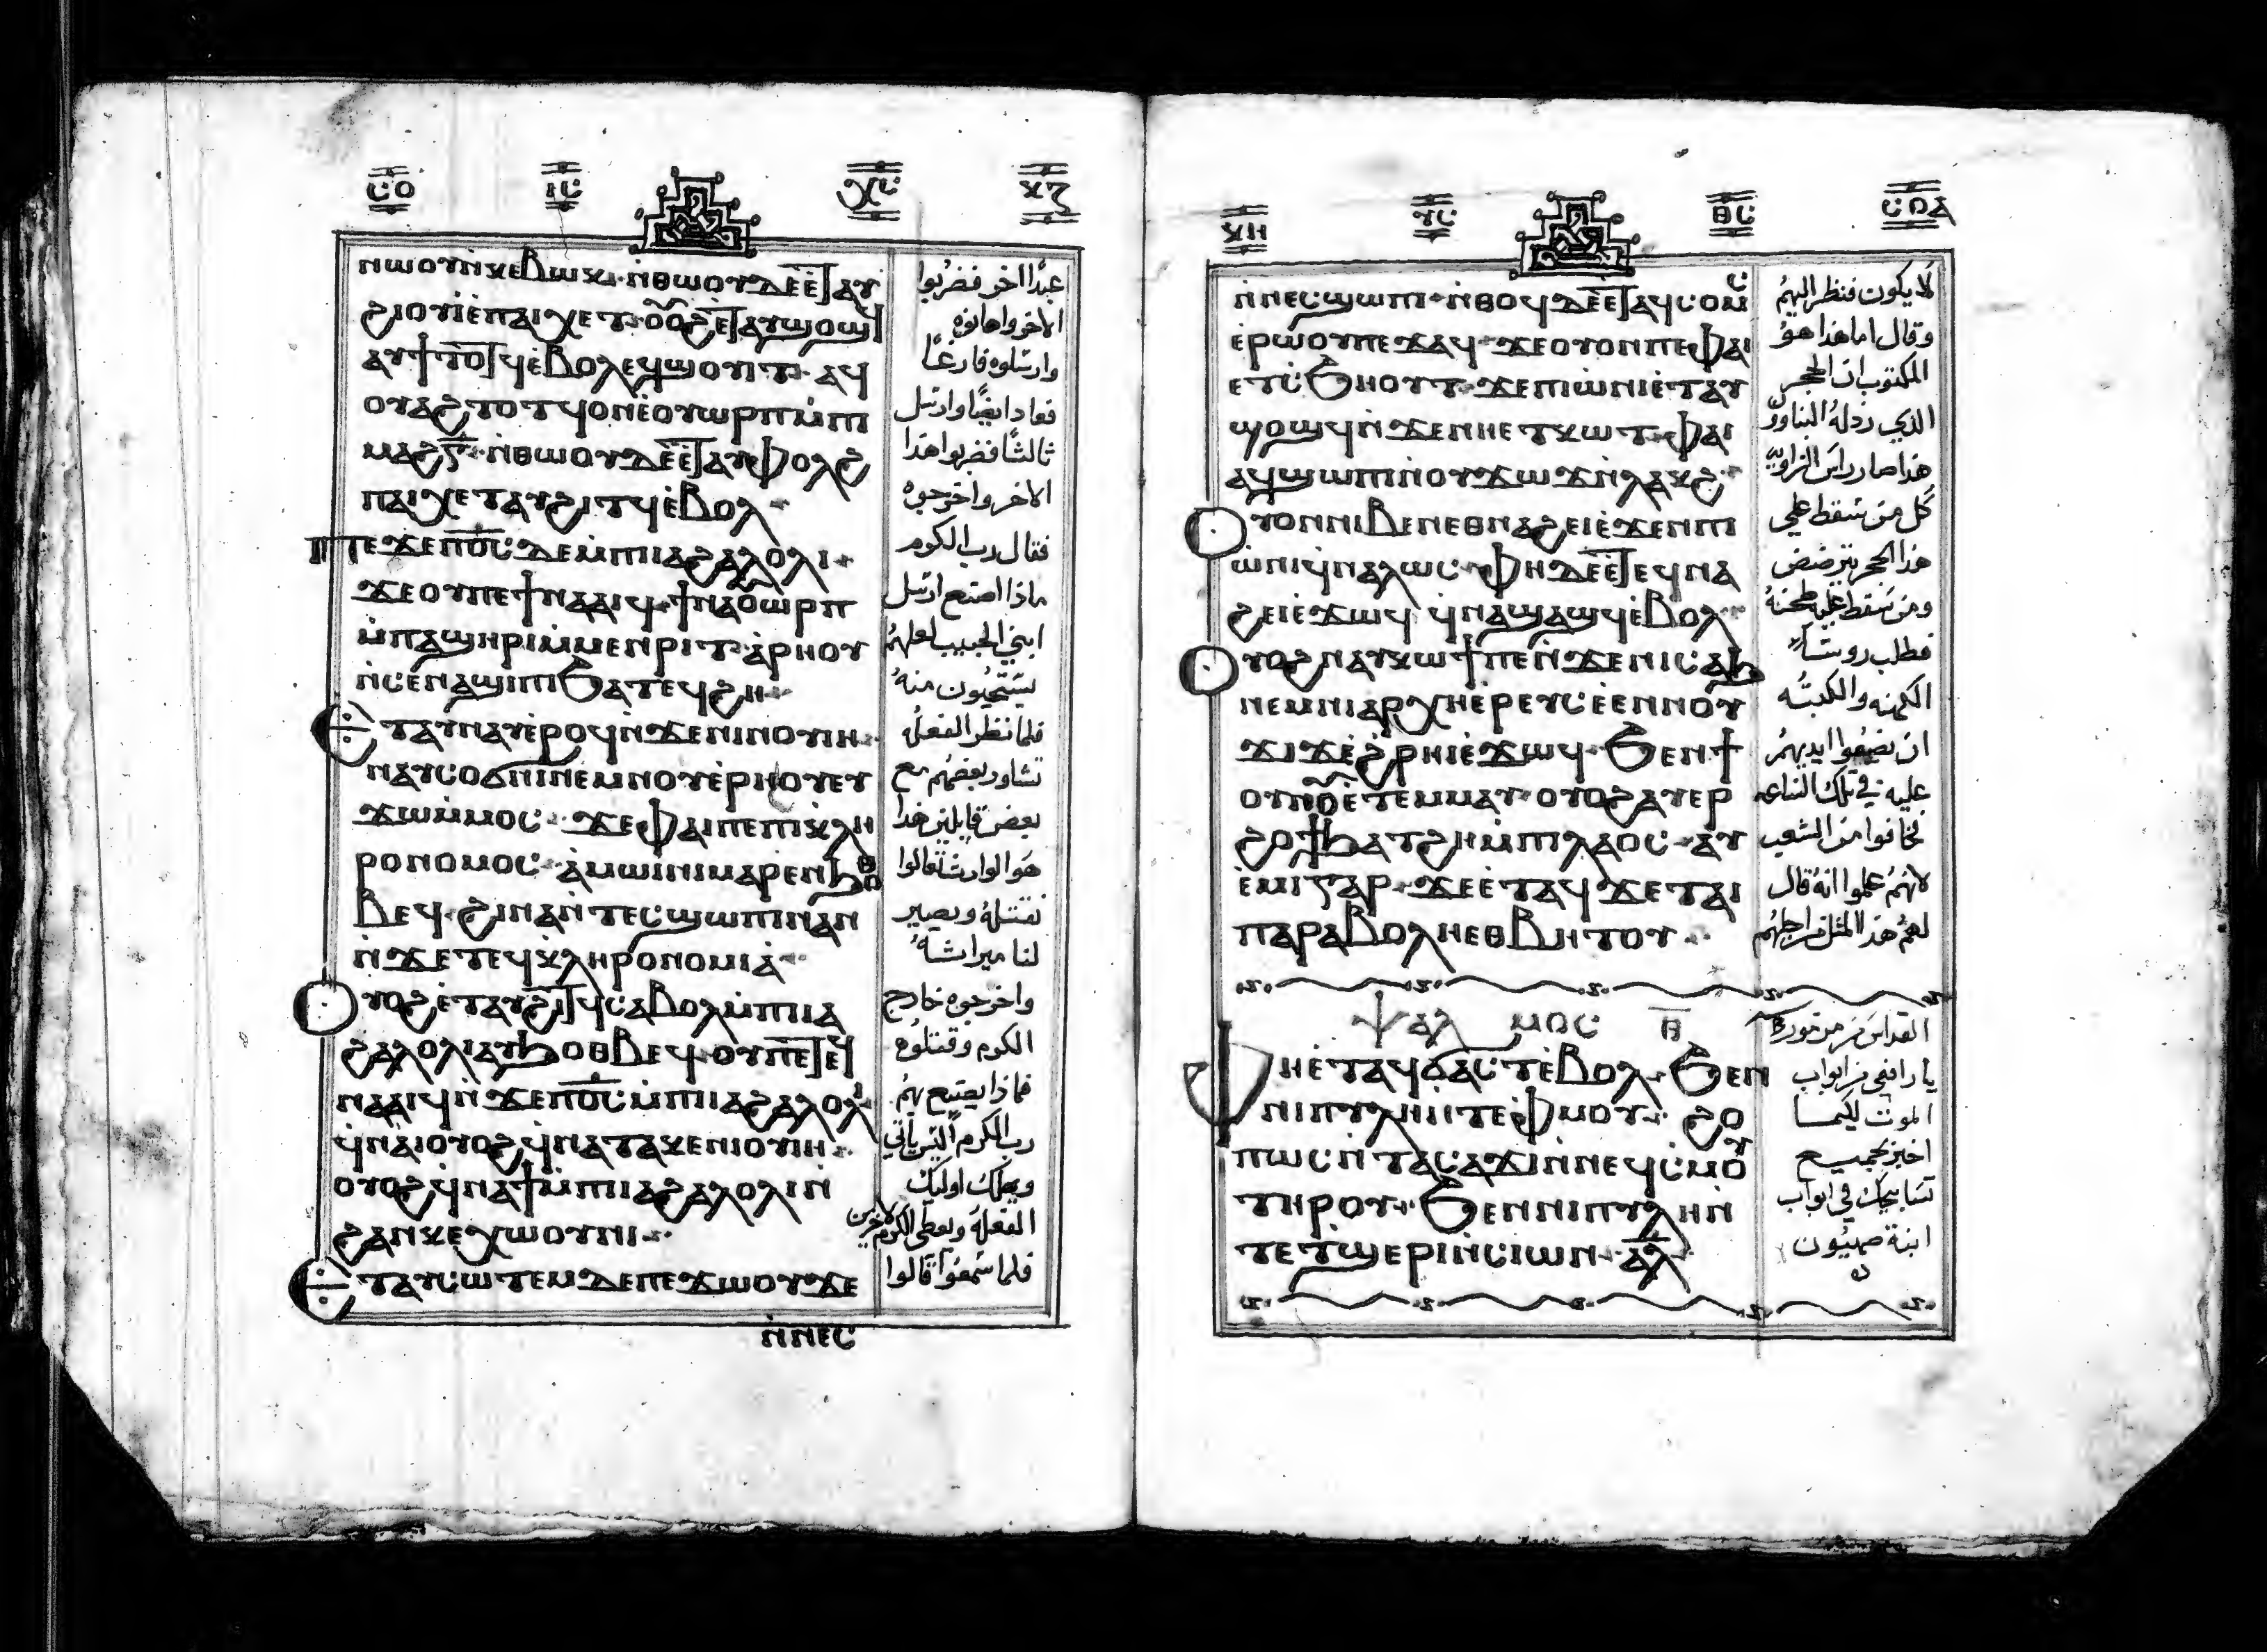 ⲛⲱⲟⲩⲛ̀ⲕⲉⲃⲱⲕ ⲛ̀ⲑⲱⲟⲩⲇⲉⲉⲧⲁⲩ
ϩⲓⲟⲩⲓ̀ⲉ̀ⲡⲁⲓⲭⲉⲧ ⲟⲩⲟϩⲉⲧⲁⲩϣⲟϣϥ
ⲁⲩϯⲧⲟⲧϥⲉ̀ⲃⲟⲗⲉϥϣⲟⲩⲓⲧ ⲁϥ
ⲟⲩⲁϩⲧⲟⲧϥⲟⲛⲉ̀ⲟⲩⲱⲣⲡⲙ̀ⲡⲓ
ⲙⲁϩⲅ̅ ⲛ̀ⲑⲱⲟⲩⲇⲉⲉⲧⲁⲩⲫⲟⲗϩ
ⲡⲁⲓⲭⲉⲧⲁⲩϩⲓⲧϥⲉ̀ⲃⲟⲗ
ⲡⲉϫⲉⲡⲟ̅ⲥ̅ⲇⲉⲙ̀ⲡⲓⲁϩⲁⲗⲟⲗⲓ
ϫⲉⲟⲩⲡⲉϯⲛⲁⲁⲓϥ ϯⲛⲁⲟⲩⲱⲣⲡ
ⲙ̀ⲡⲁϣⲏⲣⲓⲙ̀ⲙⲉⲛⲣⲓⲧ ⲁ̀ⲣⲏⲟⲩ
ⲛ̀ⲥⲉⲛⲁϣⲓⲡⲓϧⲁⲧⲉϥϩⲏ
ⲉⲧⲁⲩⲛⲁⲩⲉ̀ⲣⲟϥⲛ̀ϫⲉⲛⲓⲛⲟⲩⲓⲏ
ⲛⲁⲩⲥⲟϭⲛⲓⲛⲉⲙⲛⲟⲩⲉ̀ⲣⲏⲟⲩⲉⲩ
ϫⲱⲙ̀ⲙⲟⲥ ϫⲉⲫⲁⲓⲡⲉⲡⲓⲕⲗⲏ
ⲣⲟⲛⲟⲙⲟⲥ ⲁ̀ⲙⲱⲓⲛⲓⲙⲁⲣⲉⲛϧⲟⲑ
ⲃⲉϥ ϩⲓⲛⲁⲛ̀ⲧⲉⲥϣⲱⲡⲓⲛⲁⲛ
ⲛ̀ϫⲉⲧⲉϥⲕⲗⲏⲣⲟⲛⲟⲙⲓⲁ̀
ⲟⲩⲟϩⲉ̀ⲧⲁⲩϩⲓⲧϥⲥⲁⲃⲟⲗⲙ̀ⲡⲓⲁ
ϩⲁⲗⲟⲗⲓⲁⲩϧⲟⲑⲃⲉϥ ⲟⲩⲡⲉⲧⲉϥ
ⲛⲁⲁⲓϥⲛ̀ϫⲉⲡⲟ̅ⲥ̅ⲙ̀ⲡⲓⲁϩⲁⲗⲟⲗⲓ
ϥ̀ⲛⲁⲓ̀ⲟⲩⲟϩϥ̀ⲛⲁⲧⲁⲕⲉⲛⲓⲟⲩⲓⲏ
ⲟⲩⲟϩϥ̀ⲛⲁϯⲙ̀ⲡⲓⲁϩⲁⲗⲟⲗⲓⲛ̀
ϩⲁⲛⲕⲉⲭⲱⲟⲩⲛⲓ
ⲉⲧⲁⲩⲥⲱⲧⲉⲙⲇⲉⲡⲉϫⲱⲟⲩϫⲉ
ⲛ̀ⲛⲉⲥ
عبدًا اخر فضربوا
الاخر واهانوه
وارسلوه فارغًا
فعاد ايضًا وارسل
ثالثًا فضربوا هذا
الاخر واخرجوه
فقال رب الكرم
ماذا اصنع ارسل
ابني الحبيب لعلهم
يستحيون منه
فلما نظر الفعله
تشاور بعضهم مع
بعض قايلين هذا
هو الوارث تعالوا
نقتله ويصير
لنا ميراثه
واخرجوه خارج
الكرم وقتلوه
فماذا يصنع بهم
رب الكرم اليس ياتي
ويهلك اوليك
الفعلة ويعطي الكرم لاخرين
فلما سمعوا قالوا
ⲛ̀ⲛⲉⲥϣⲱⲡⲓ ⲛ̀ⲑⲟϥⲇⲉⲉⲧⲁϥⲥⲟⲙⲥ
ⲉ̀ⲣⲱⲟⲩⲡⲉϫⲁϥ ϫⲉⲟⲩⲟⲛⲡⲉⲫⲁⲓ
ⲉⲧⲥ̀ϧⲏⲟⲩⲧ ϫⲉⲡⲓⲱ̀ⲛⲓⲉ̀ⲧⲁⲩ
ϣⲟϣϥⲛ̀ϫⲉⲛⲏⲉⲧⲕⲱⲧ ⲫⲁⲓ
ⲁϥϣⲱⲡⲓⲛ̀ⲟⲩϫⲱϫⲛ̀ⲗⲁⲕϩ
ⲟⲩⲟⲛⲛⲓⲃⲉⲛⲉⲑⲛⲁϩⲉⲓⲉ̀ϫⲉⲛⲡⲓ
ⲱ̀ⲛⲓϥ̀ⲛⲁⲗⲱⲥ ⲫⲏⲇⲉⲉⲧⲉϥⲛⲁ
ϩⲉⲓⲉ̀ϫⲱϥ ϥ̀ⲛⲁϣⲁϣϥⲉ̀ⲃⲟⲗ
ⲟⲩⲟϩⲛⲁⲩⲕⲱϯⲡⲉⲛ̀ϫⲉⲛⲓⲥⲁϧ
ⲛⲉⲙⲛⲓⲁⲣⲭⲏⲉ̀ⲣⲉⲩⲥⲉ̀ⲉⲛⲛⲟⲩ
ϫⲓϫⲉ̀ϩ̀ⲣⲏⲓⲉ̀ϫⲱϥ ϧⲉⲛϯ
ⲟⲩⲛⲟⲩⲉ̀ⲧⲉⲙⲙⲁⲩ ⲟⲩⲟϩⲁⲩⲉⲣ
ϩⲟϯϧⲁⲧϩⲏⲙ̀ⲡⲓⲗⲁⲟⲥ ⲁⲩ
ⲉ̀ⲙⲓⲅⲁⲣ ϫⲉⲉ̀ⲧⲁϥϫⲉⲧⲁⲓ
ⲡⲁⲣⲁⲃⲟⲗⲏⲉⲑⲃⲏⲧⲟⲩ
ⲯⲁⲗⲙⲟⲥ ⲑ̅
ⲫⲏⲉ̀ⲧⲁϥϭⲁⲥⲧⲉ̀ⲃⲟⲗ ϧⲉⲛ
ⲛⲓⲡⲩⲗⲏⲛ̀ⲧⲉⲫ̀ⲙⲟⲩ ϩⲟ
ⲡⲱⲥⲛ̀ⲧⲁⲥⲁϫⲓⲛ̀ⲛⲉϥⲥ̀ⲙⲟⲩ
ⲧⲏⲣⲟⲩ ϧⲉⲛⲛⲓⲡⲩⲗⲏⲛ̀
ⲧⲉⲧϣⲉⲣⲓⲛ̀ⲥⲓⲱⲛ ⲁ̅ⲗ̅
لا يكون فنظر اليهم
وقال اما هذا هو
المكتوب ان الحجر
الذي رذله البناوون
هذا صار راس الزاويه
كل من سقط علي
هذا الحجر يترضض
ومن سقط عليه طحنه
فطلب روسا
الكهنه والكتبه
ان يضعوا ايديهم
عليه في تلك الساعه
فخافوا من الشعب
لانهم علموا انه قال
لهم هذا المثل من اجلهم
القداس مزمور
يا رافعي من ابواب
الموت لكيما
اخبر بجميع
تسابيحك في ابواب
ابنة صهيون